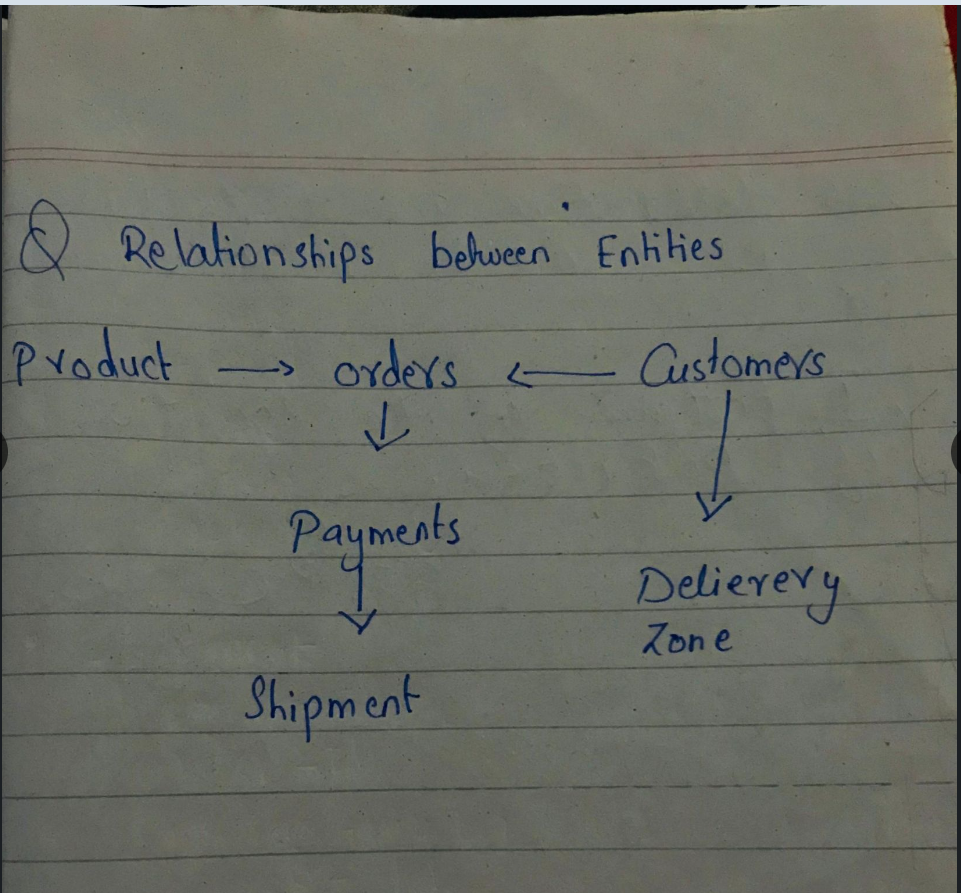 Q Relationships between Entities
Product → orders ← Customers
Payments
Delierery
Zone
Shipment